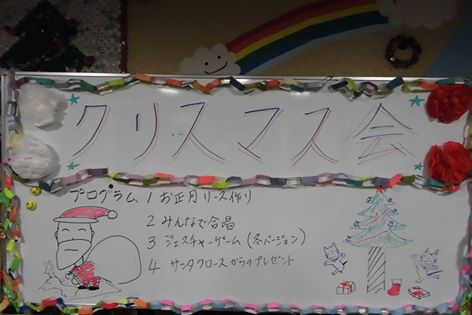 クリスマス会
プログラム 1 お正月リース作り
2 みんなで合唱
3 ジェスチャーゲーム(冬バージョン)
4 サンタクロースからのプレゼント